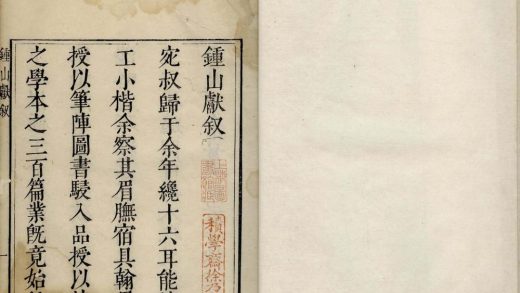 鍾山獻叙
積學齋徐乃
宛叔歸于余年纔十六耳能
工小楷余察其眉膴宿具翰
授以筆陣圖書駸入品授以
之學本之三百篇業旣竟始
鍾山獻叙